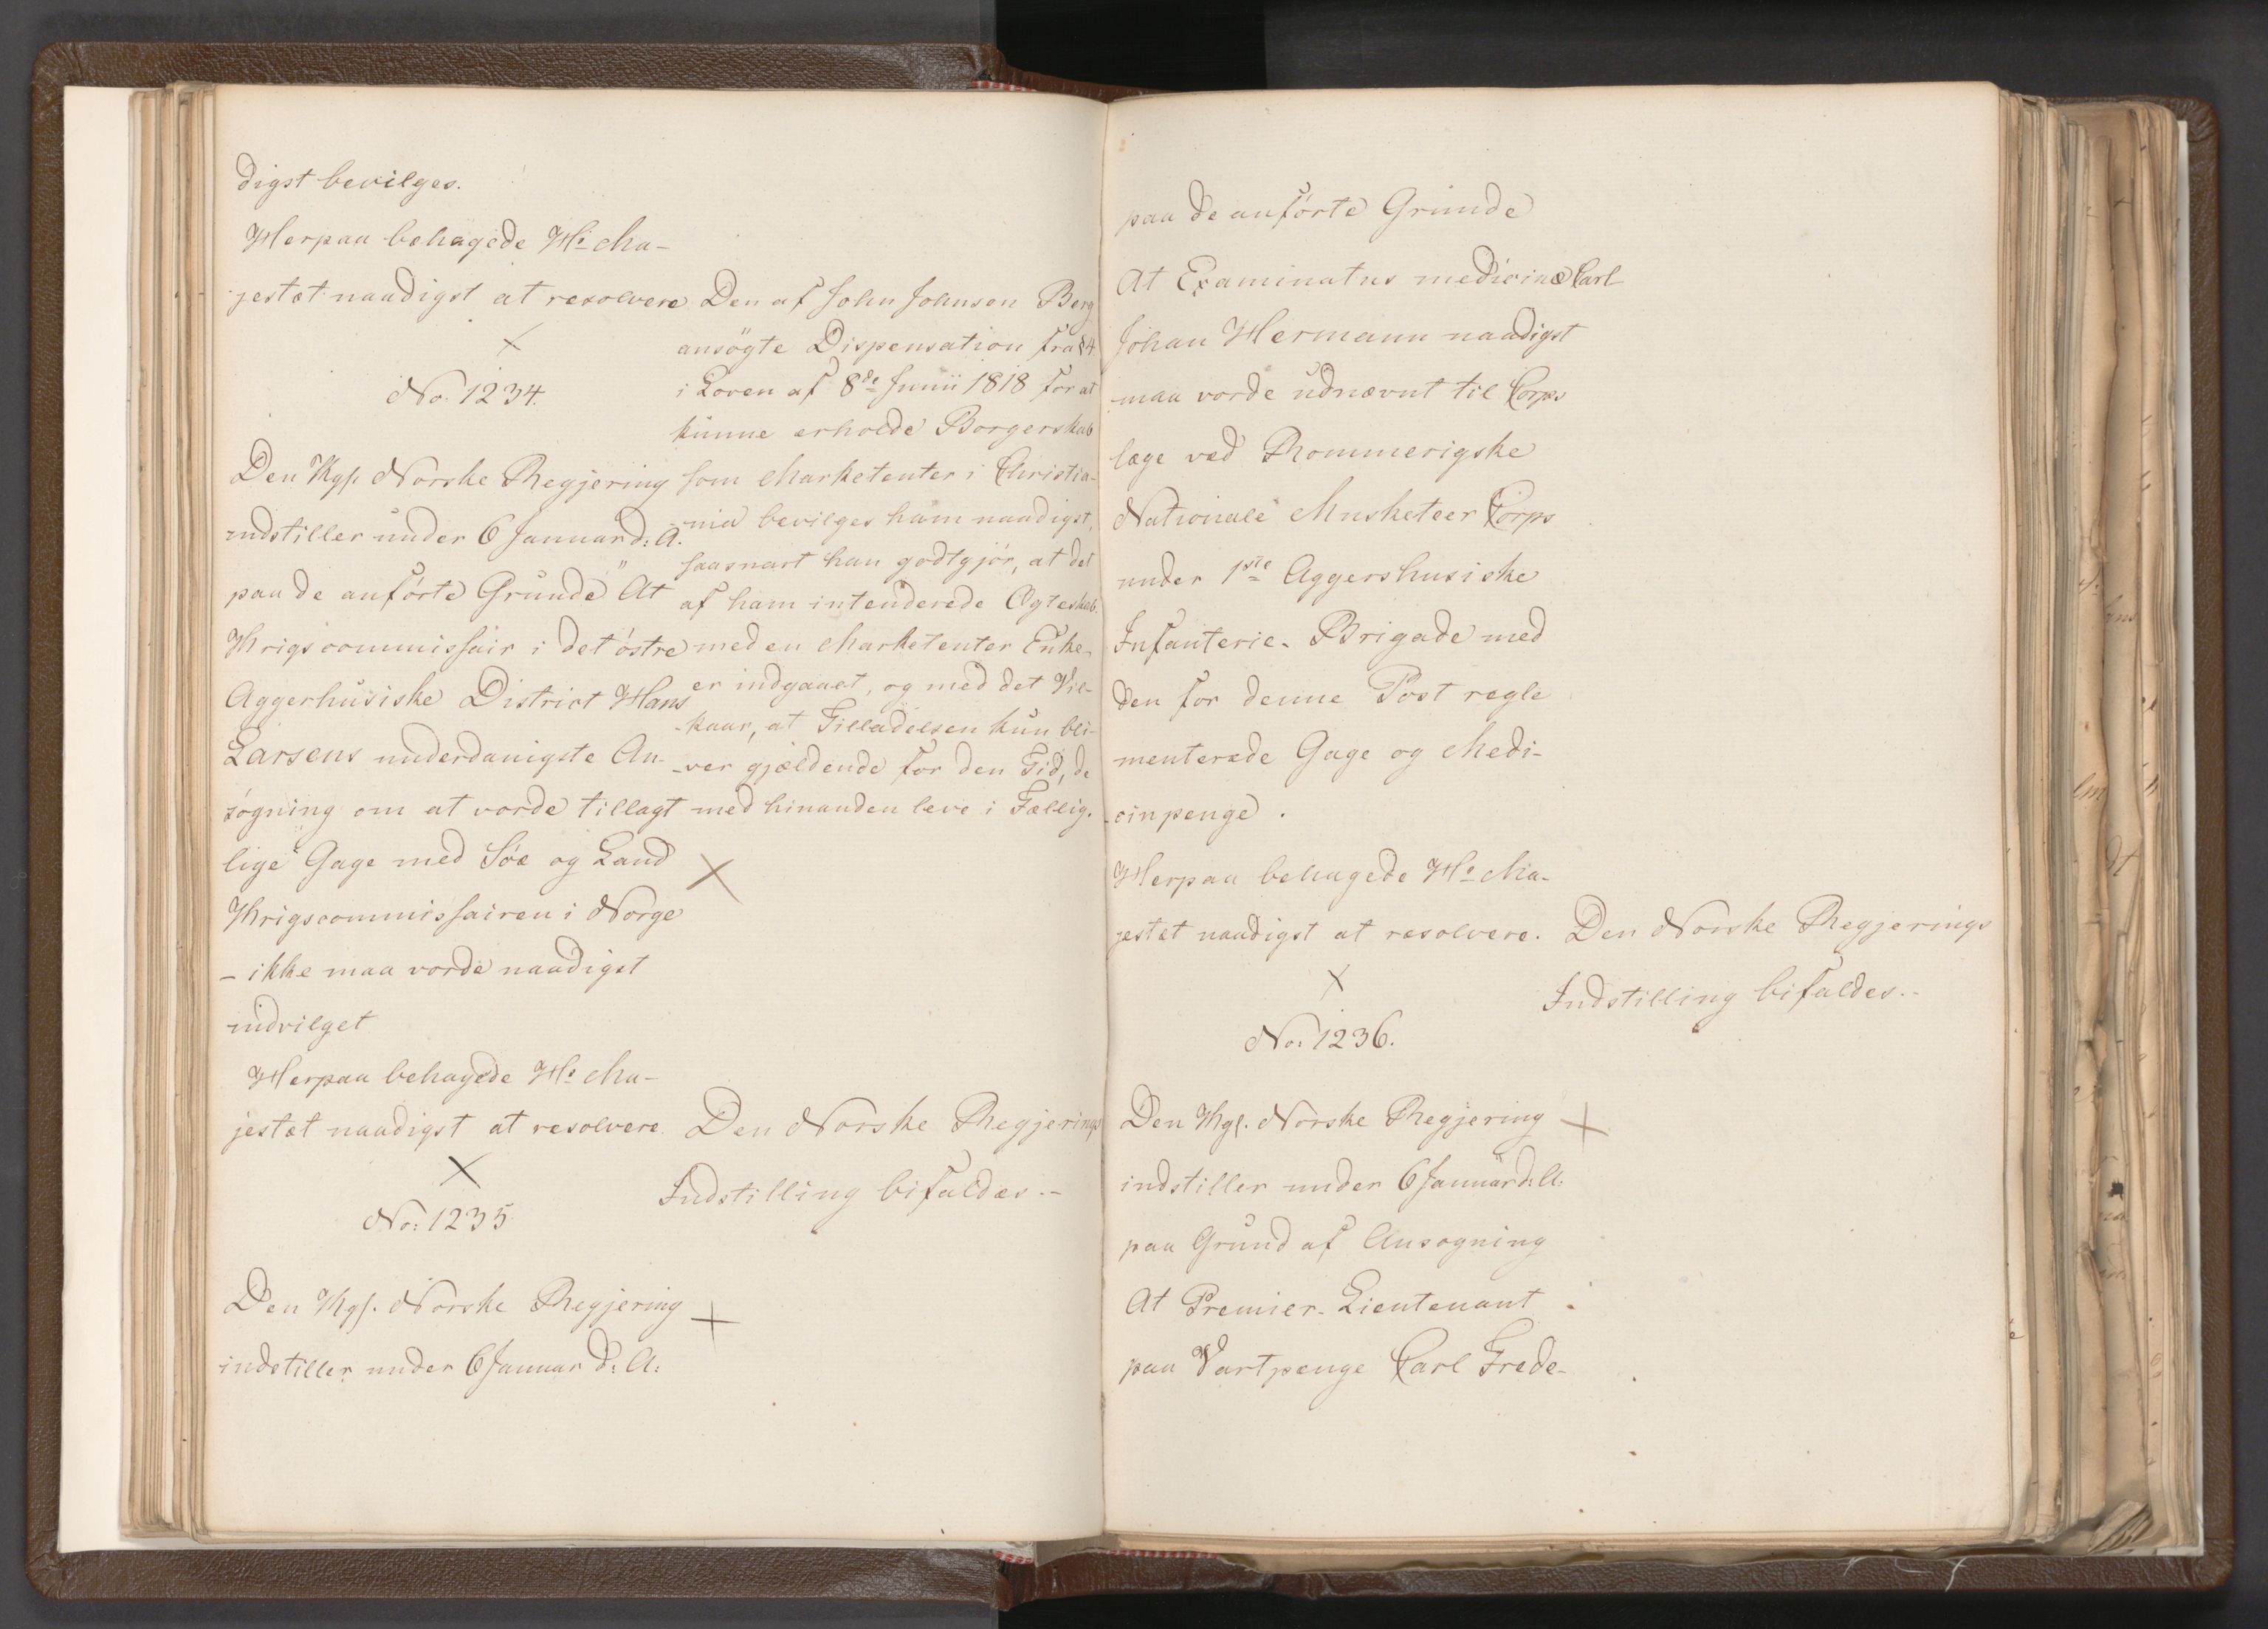 digst bevilges.
Herpaa behagede Hs Ma-
jestæt naadigst at resolvere
Den af John Johnsen Berg
ansögte Dispensation fra § 4
i Loven af 8de Junii 1818 for at
kunne erholde Borgerskab
som Marketenter i Christia-
nia bevilges ham naadigst,
saasnart han godtgjór, at det
af ham intenderede Ægteskab
med en Marketenter Enke
er indgaaet, og med det Vil-
-kaar, at Tilladelsen kun bli-
-ver gjældende for den Tid, de
med hinanden leve i Fællig.
No. 1234.
Den Kgl. Norske Regjering
indstiller under 6 Januar d: A.
paa de anförte Grunde "At
Krigscommissair i det östre
Aggerhusiske District Hans
Larsens underdanigste An-
sögning om at vorde tillagt
lige Gage med Söe og Land
Krigscommissairen i Norge
- ikke maa vorde naadigst
indvilget
Herpaa behagede Hs Ma-
jestæt naadigst at resolvere.
Den Norske Regjerings
Indstilling bifaldes.-
No: 1235
Den Kgl. Norske Regjering
indstiller under 6 Januar d: A:
paa de anförte Grunde
At Examinatus medicinæ Carl
Johan Hermann naadigst
maa vorde udnævnt til Corps
læge ved Rommerigske
Nationale Musketeer Corps
under 1ste Aggershusiske
Infanterie- Brigade med
den for denne Post regle
menterede Gage og Medi-
-cinpenge.
Herpaa behagede Hs Ma-
jestæt naadigst at resolvere.
Den Norske Regjerings
Indstilling bifaldes.-
No: 1236.
Den Kgl. Norske Regjering
indstiller under 6 Januar d: A:
paa Grund af Ansogning
At Premier-Lieutenant
paa Vartpenge Carl Frede-